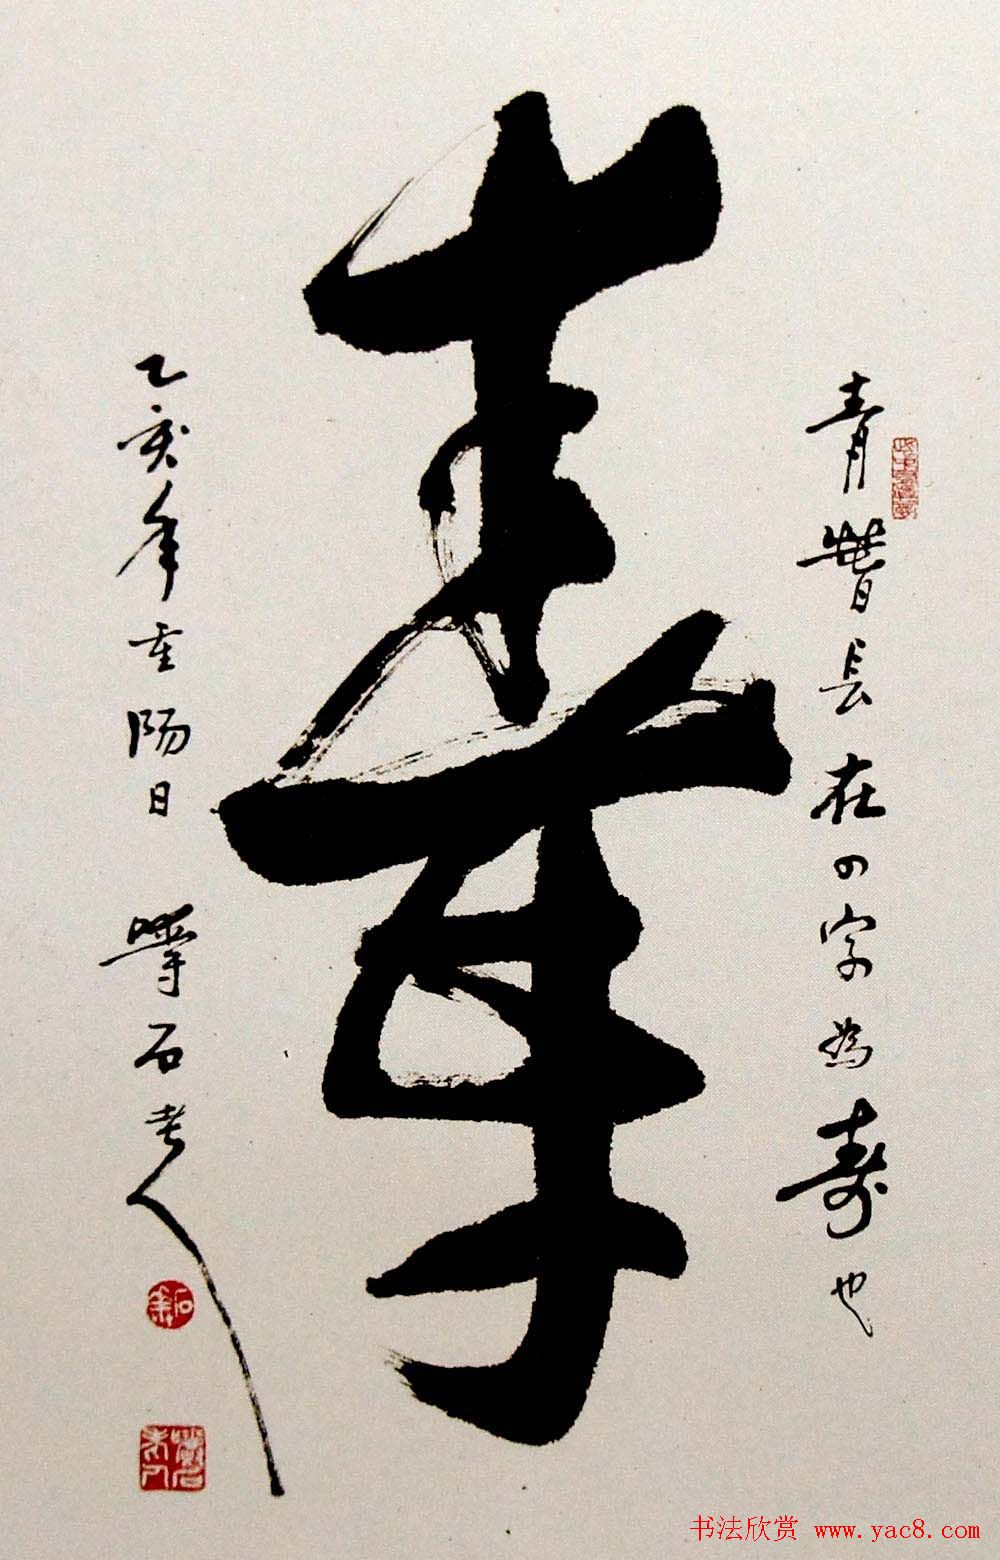 青春長在四字為壽也
壽
乙亥年重陽日
石老人
书法欣赏 www.yac8.com